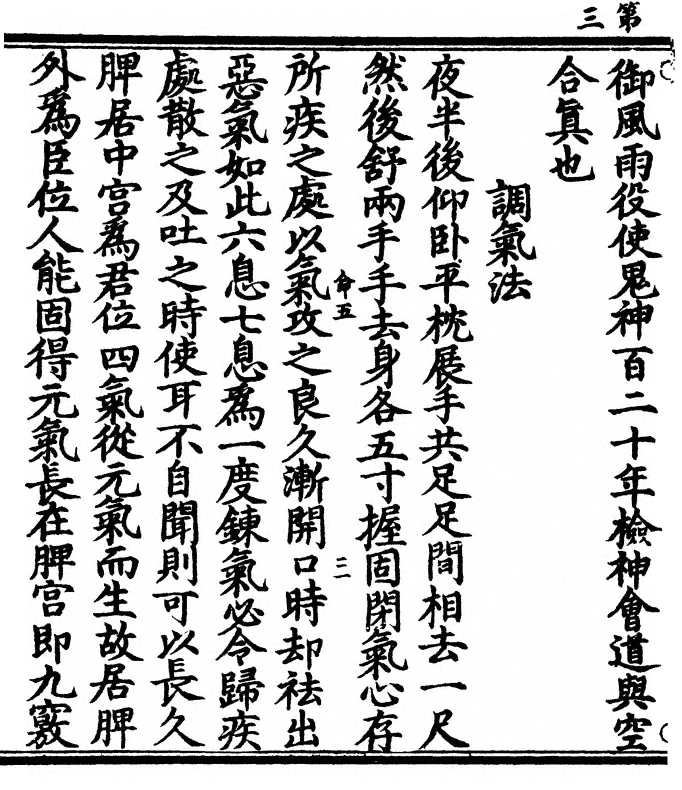 第三
御風雨役使鬼神百二十年檢神會道與空
合眞也
調氣法
夜半後仰卧平枕展手共足足間相去一尺
然後舒兩手手去身各五寸握固閉氣心存
命五
三
所疾之處以氣攻之良久漸開口時却袪出
惡氣如此六息七息爲一度鍊氣必令歸疾
處散之及吐之時使耳不自聞則可以長久
脾居中宫爲君位四氣從元氣而生故居脾
外爲臣位人能固得元氣長在脾宫即九竅